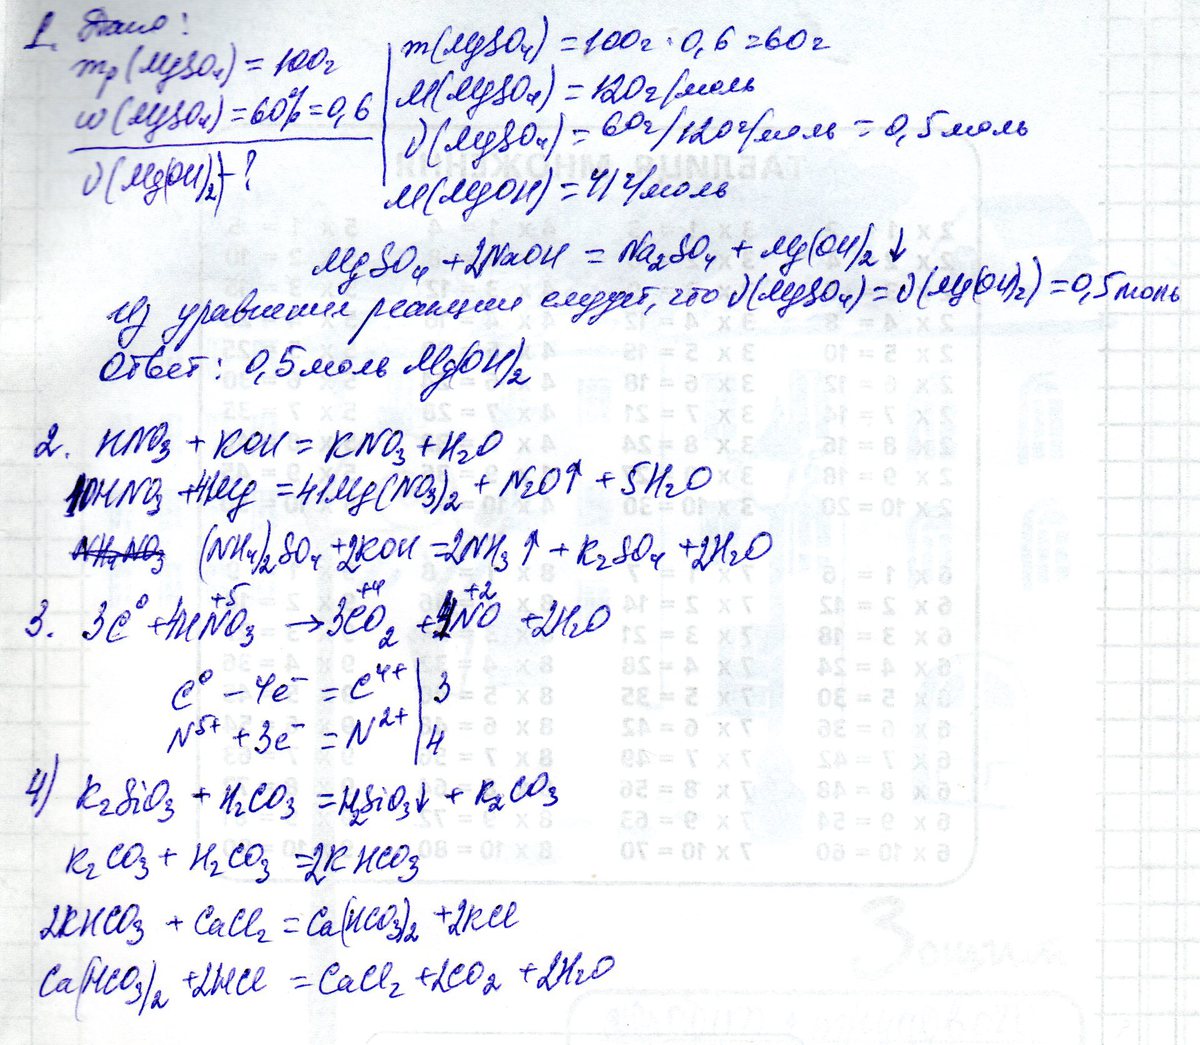 1. Дано:
mр(MgSO₄) = 100г
ω(MgSO₄) = 60% = 0,6
ν(Mg(OH)₂) - ?
m(MgSO₄) = 100г · 0,6 = 60г
M(MgSO₄) = 120г/моль
ν(MgSO₄) = 60г/120г/моль = 0,5моль
M(MgOH) = 41г/моль
MgSO₄ + 2NaOH = Na₂SO₄ + Mg(OH)₂↓
Из уравнения реакции следует, что ν(MgSO₄) = ν(Mg(OH)₂) = 0,5моль
Ответ: 0,5моль Mg(OH)₂
2. HNO₃ + KOH = KNO₃ + H₂O
10HNO₃ + 4Mg = 4Mg(NO₃)₂ + N₂O↑ + 5H₂O
NH₄NO₃ (NH₄)₂SO₄ + 2KOH = 2NH₃↑ + K₂SO₄ + 2H₂O
3. 3C⁰ + 4HN⁺⁵O₃ → 3C⁺⁴O₂ + 4N⁺²O + 2H₂O
C⁰ - 4e⁻ = C⁴⁺ | 3
N⁵⁺ + 3e⁻ = N²⁺ | 4
4) K₂SiO₃ + H₂CO₃ = H₂SiO₃↓ + K₂CO₃
K₂CO₃ + H₂CO₃ = 2KHCO₃
2KHCO₃ + CaCl₂ = Ca(HCO₃)₂ + 2KCl
Ca(HCO₃)₂ + 2HCl = CaCl₂ + 2CO₂ + 2H₂O